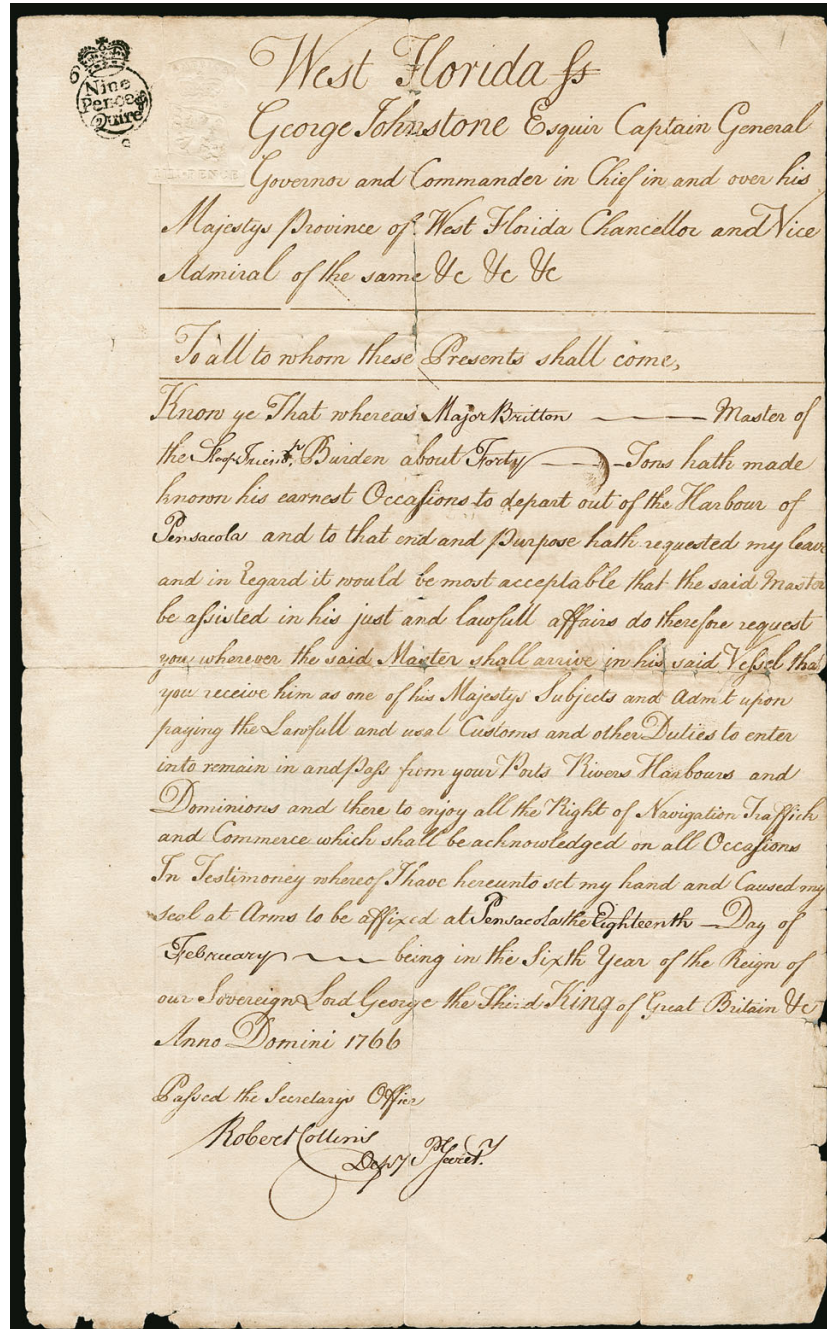 Nine
Pence ℔
Quire
West Florida ss
George Johnstone Esquir Captain General
Governor and Commander in Chief in and over his
Majestys Province of West Florida Chancellor and Vice
Admiral of the same &c &c &c
To all to whom these Presents shall come,
Know ye That whereas Major Britton Master of
the Sloop Friends.p Burden about Forty Tons hath made
known his earnest Occasions to depart out of the Harbour of
Pensacola and to that end and Purpose hath requested my leave
and in Regard it would be most acceptable that the said Master
be assisted in his just and lawfull affairs do therefore request
you wherever the said Master shall arrive in his said Vessel tha
you receive him as one of his Majestys Subjects and Admit upon
paying the Lawfull and usal Customs and other Duties to enter
into remain in and Pass from your Ports Rivers Harbours and
Dominions and there to enjoy all the Right of Navigation Traffick
and Commerce which shall be acknowledged on all Occasions
In Testimoney whereof I have hereunto set my hand and Caused my
seal at Arms to be affixed at Pensacola the Eighteenth Day of
February being in the Sixth Year of the Reign of
our Sovereign Lord George the Third King of Great Britain &c
Anno Domini 1766
Passed the Secretarys Office
Robert Collins
Depy P Secret.y